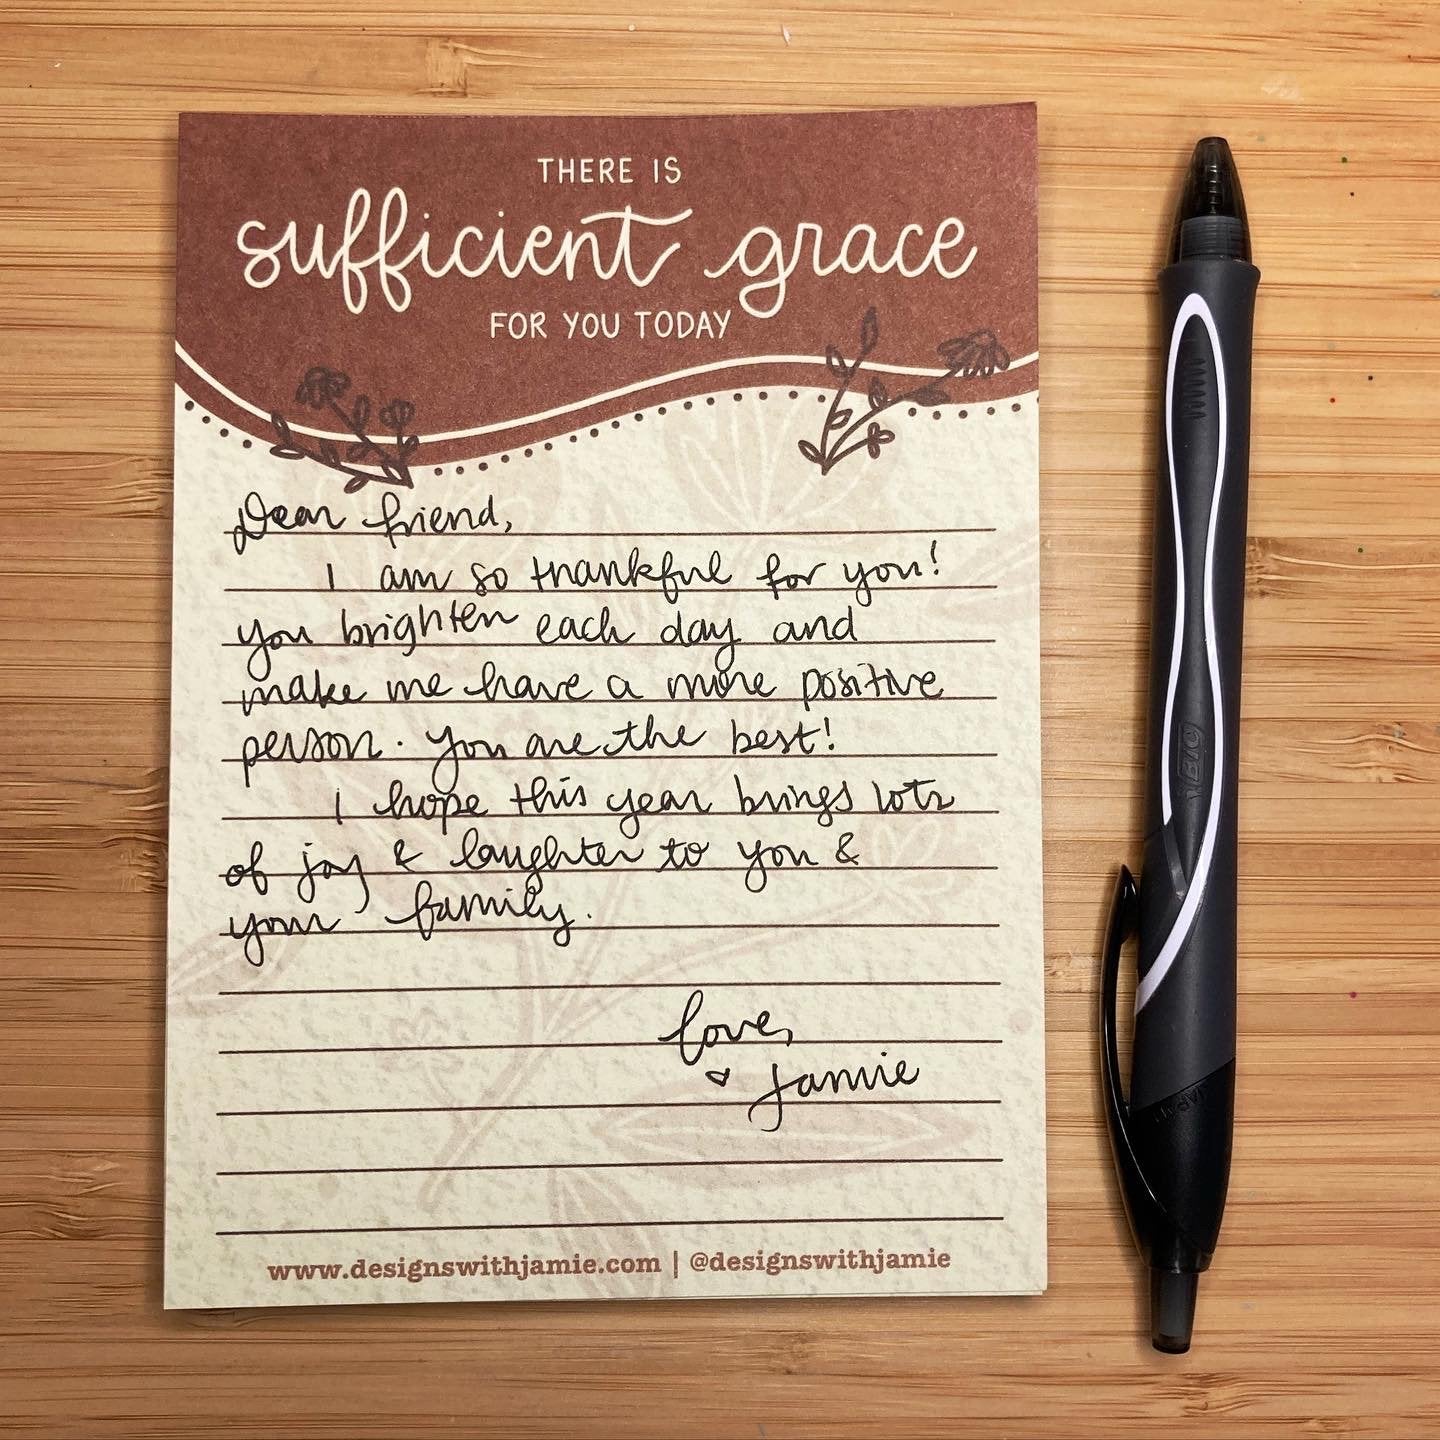 THERE IS
sufficient grace
FOR YOU TODAY
Dear friend,
I am so thankful for you!
you brighten each day and
make me have a more positive
person. You are the best!
I hope this year brings lots
of joy & laughter to you &
your family.
love,
Jamie
www.designswithjamie.com | @designswithjamie
BIC